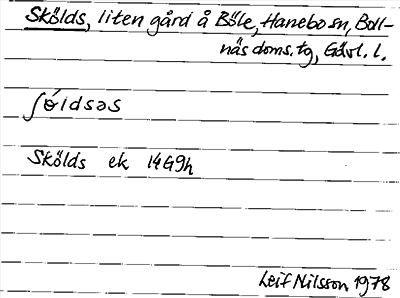 Skölds, liten gård å Böle, Hanebo sn, Boll-
näs doms. tg, Gävl. l.
ʃɵ́ldsəs
Skölds ek 14G9h
Leif Nilsson 1978